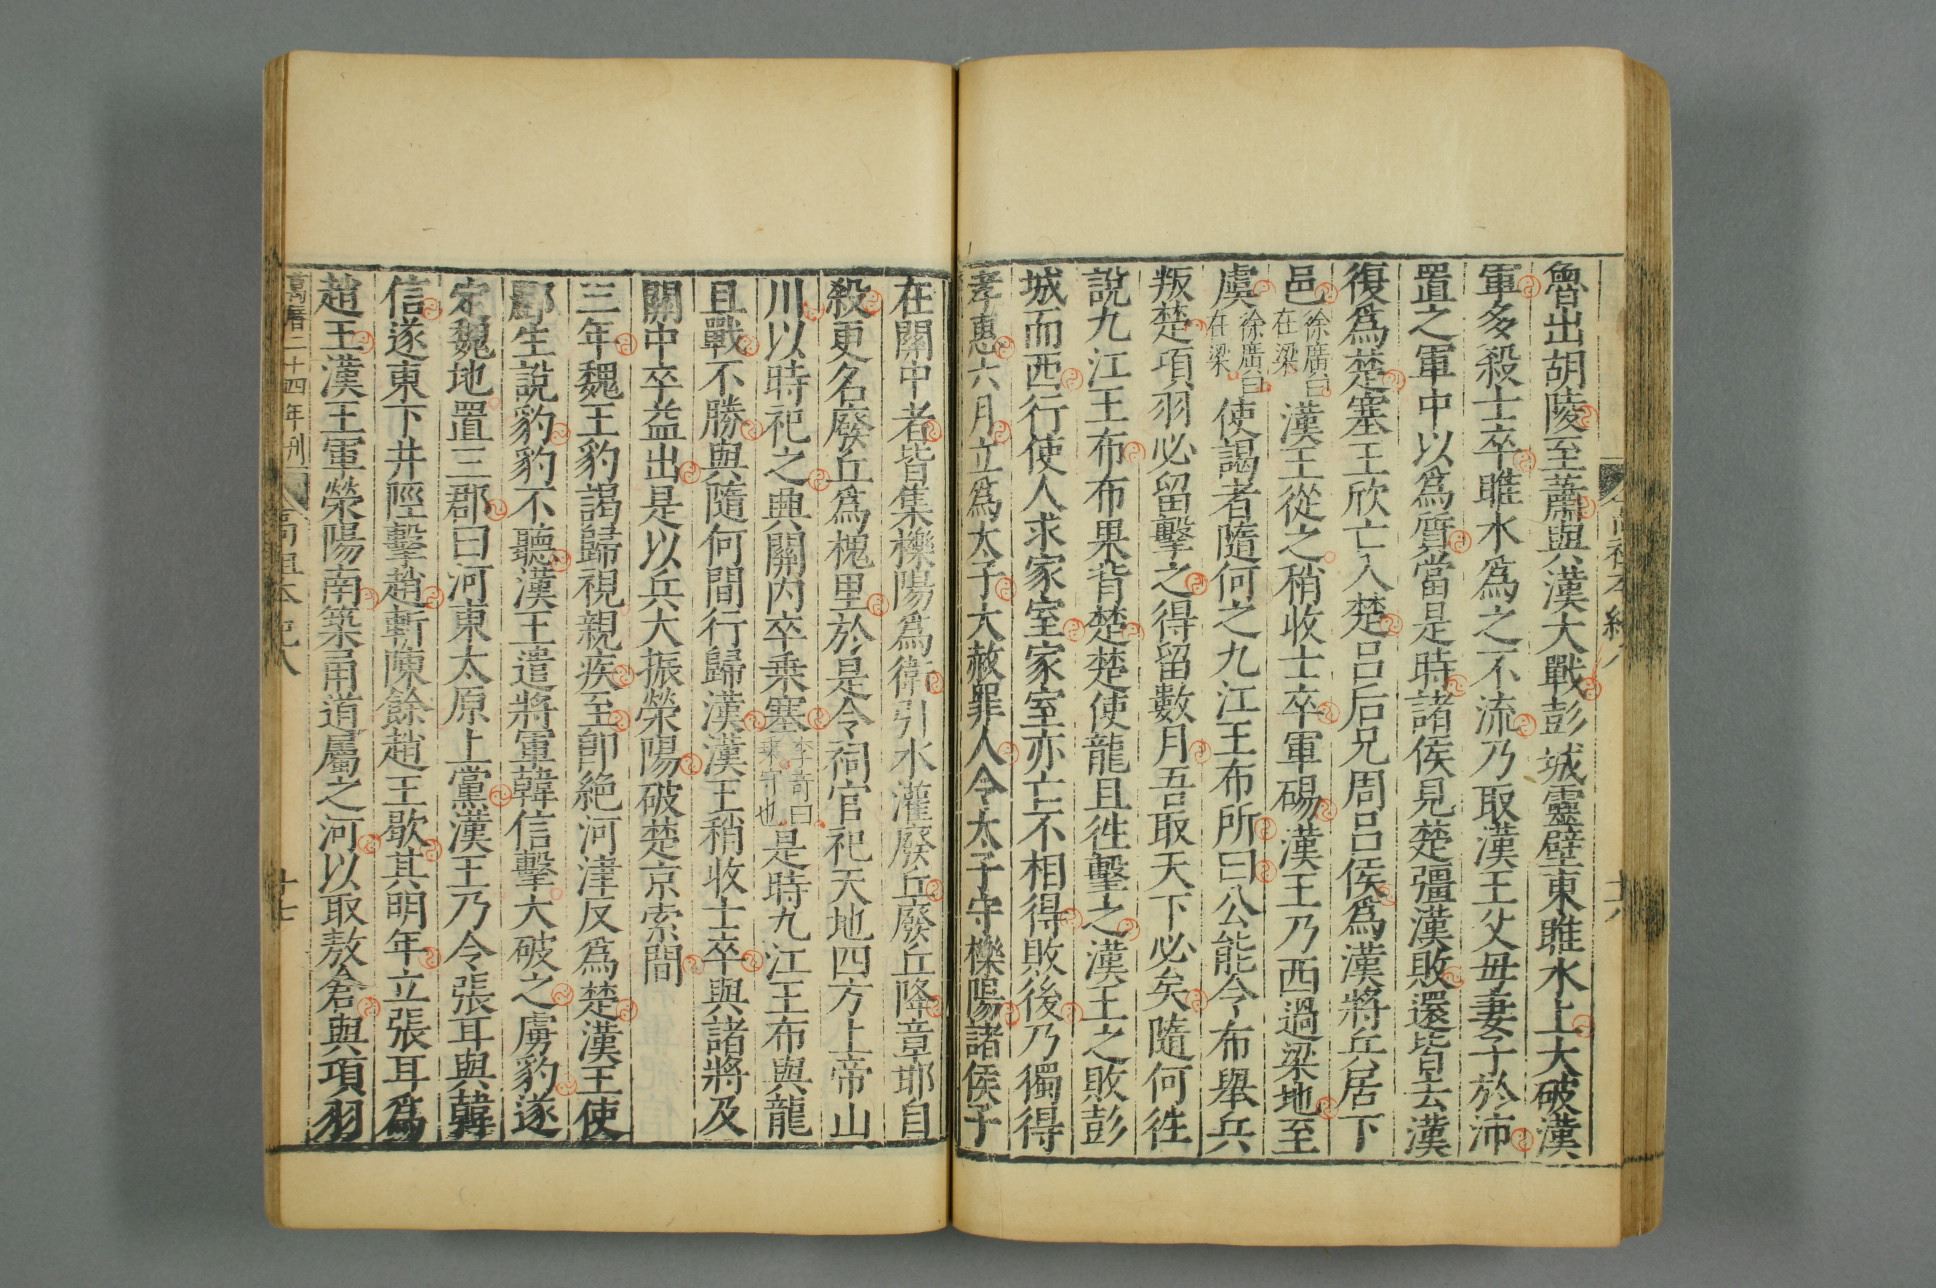 高祖本紀八
十六
魯出胡陵至蕭與漢大戰彭城靈壁東睢水上大破漢
軍多殺士卒睢水爲之不流乃取漢王父母妻子於沛
置之軍中以爲質當是時諸侯見楚彊漢敗還皆去漢
復爲楚塞王欣亡入楚呂后兄周呂侯爲漢將兵居下
邑徐廣曰在梁漢王從之稍收士卒軍碭漢王乃西過梁地至
虞徐廣曰在梁使謁者隨何之九江王布所曰公能令布舉兵
叛楚項羽必留擊之得留數月吾取天下必矣隨何往
說九江王布布果背楚楚使龍且往擊之漢王之敗彭
城而西行使人求家室家室亦亡不相得敗後乃獨得
孝惠六月立爲太子大赦罪人令太子守櫟陽諸侯子
在關中者皆集櫟陽爲衛引水灌廢丘廢丘降章邯自
殺更名廢丘爲槐里於是令祠官祀天地四方上帝山
川以時祀之興關內卒乗塞李奇曰乗守也是時九江王布與龍
且戰不勝與隨何間行歸漢漢王稍收士卒與諸將及
關中卒益出是以兵大振滎陽破楚京索間
三年魏王豹謁歸視親疾至卽絶河津反爲楚漢王使
酈生說豹豹不聽漢王遣將軍韓信擊大破之虜豹遂
定魏地置三郡曰河東太原上黨漢王乃令張耳與韓
信遂東下井陘擊趙斬陳餘趙王歇其明年立張耳爲
趙王漢王軍滎陽南築甬道屬之河以取敖倉與項羽
萬曆二十四年刊
高祖本紀八
十七